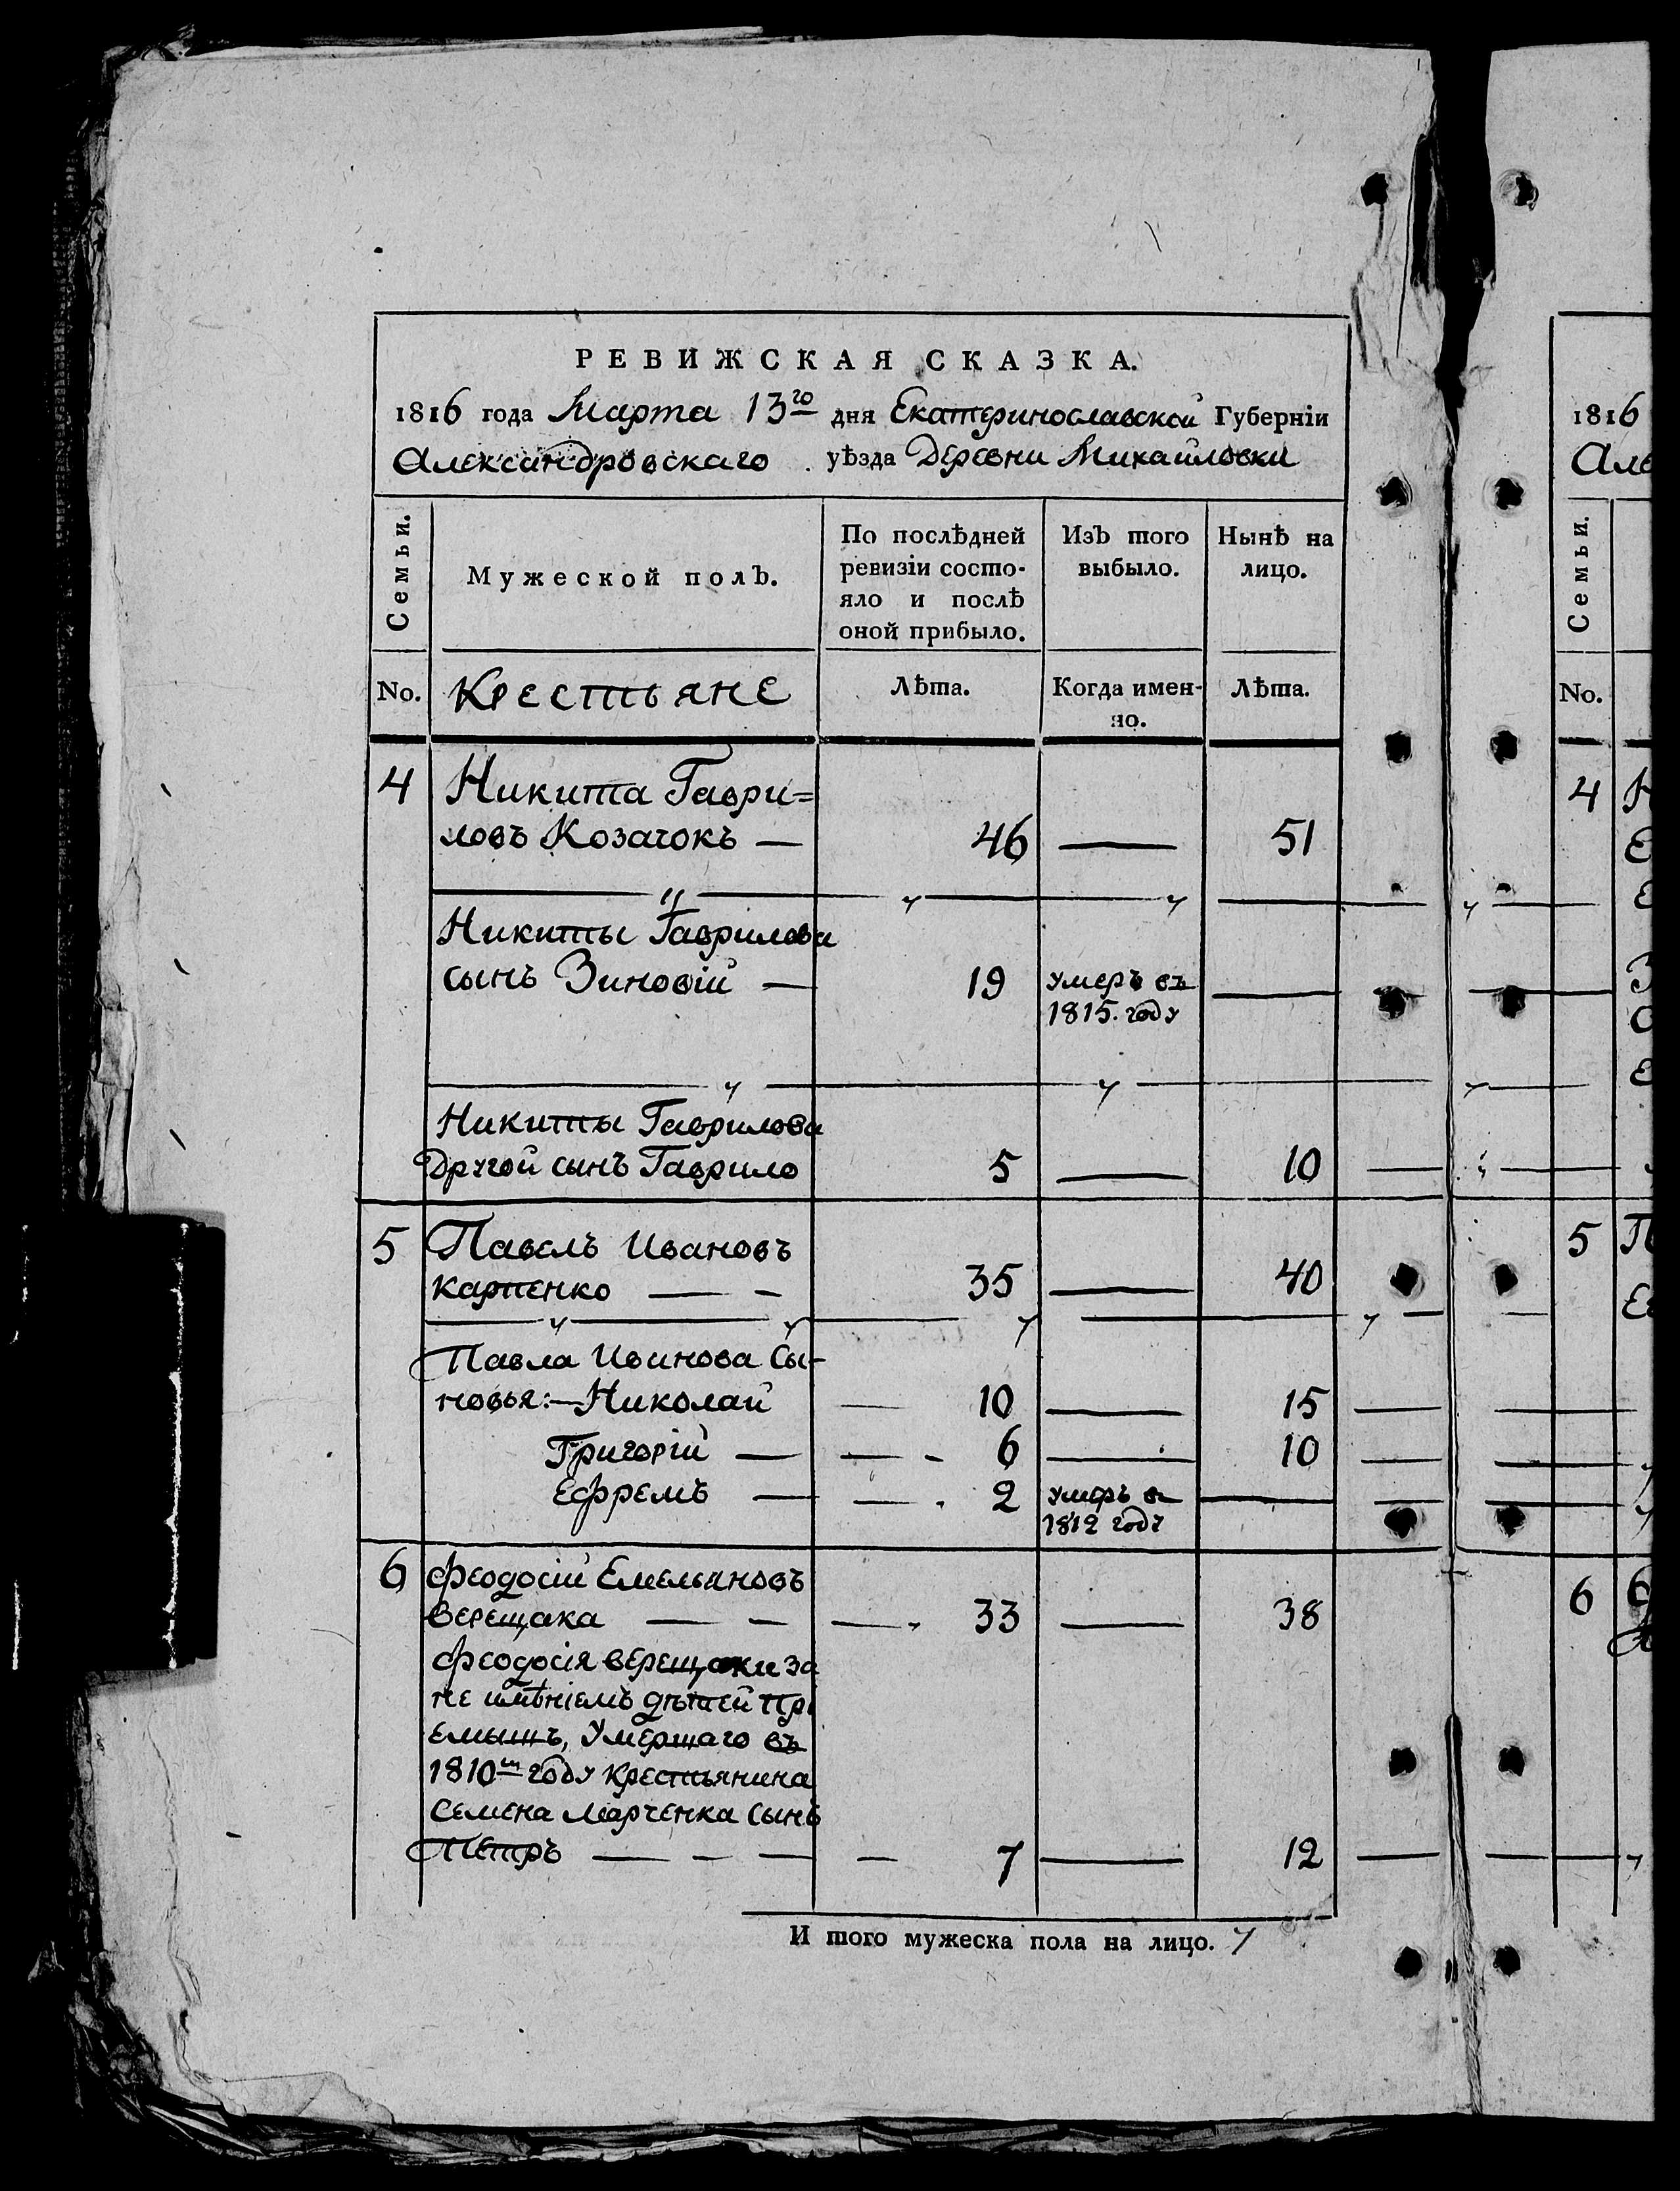 РЕВИЖСКАЯ СКАЗКА.
1816 года Марта 13го дня Екатеринославской Губерніи
Александровскаго уѣзда Деревни Михайловки
Семьи.
Мужеской полъ.
По послѣдней
ревизіи состо-
яло и послѣ
оной прибыло.
Изъ того
выбыло.
Нынѣ на
лицо.
No.
Крестьяне
Лѣта.
Когда имен-
но.
Лѣта.
4 Никита Гаври=
ловъ Козачокъ — 46 — 51
Никиты Гаврилова
сынъ Зиновій — 19 умеръ въ —
1815. году
Никиты Гаврилова
Другой сынъ Гаврило 5 — 10
5 Павелъ Ивановъ
Карпенко — — 35 — 40
Павла Иванова Сы-
новья:— Николай — 10 — 15
Григорій — — - 6 — 10
Ефремъ — — . 2 умеръ в —
1812 году
6 Феодосій Емельяновъ
Верещака — — — 33 — 38
Феодосія Верещаки за
не имѣніемъ дѣтей прі
емышъ, Умершаго въ
1810м году крестьянина
Семена Марченка Сынъ
Петръ — - — — 7 — 12
И того мужеска пола на лицо. 7
1816
Але
Семьи.
No.
4 Н
Е
Е
З
С
Е
5 П
Е
6